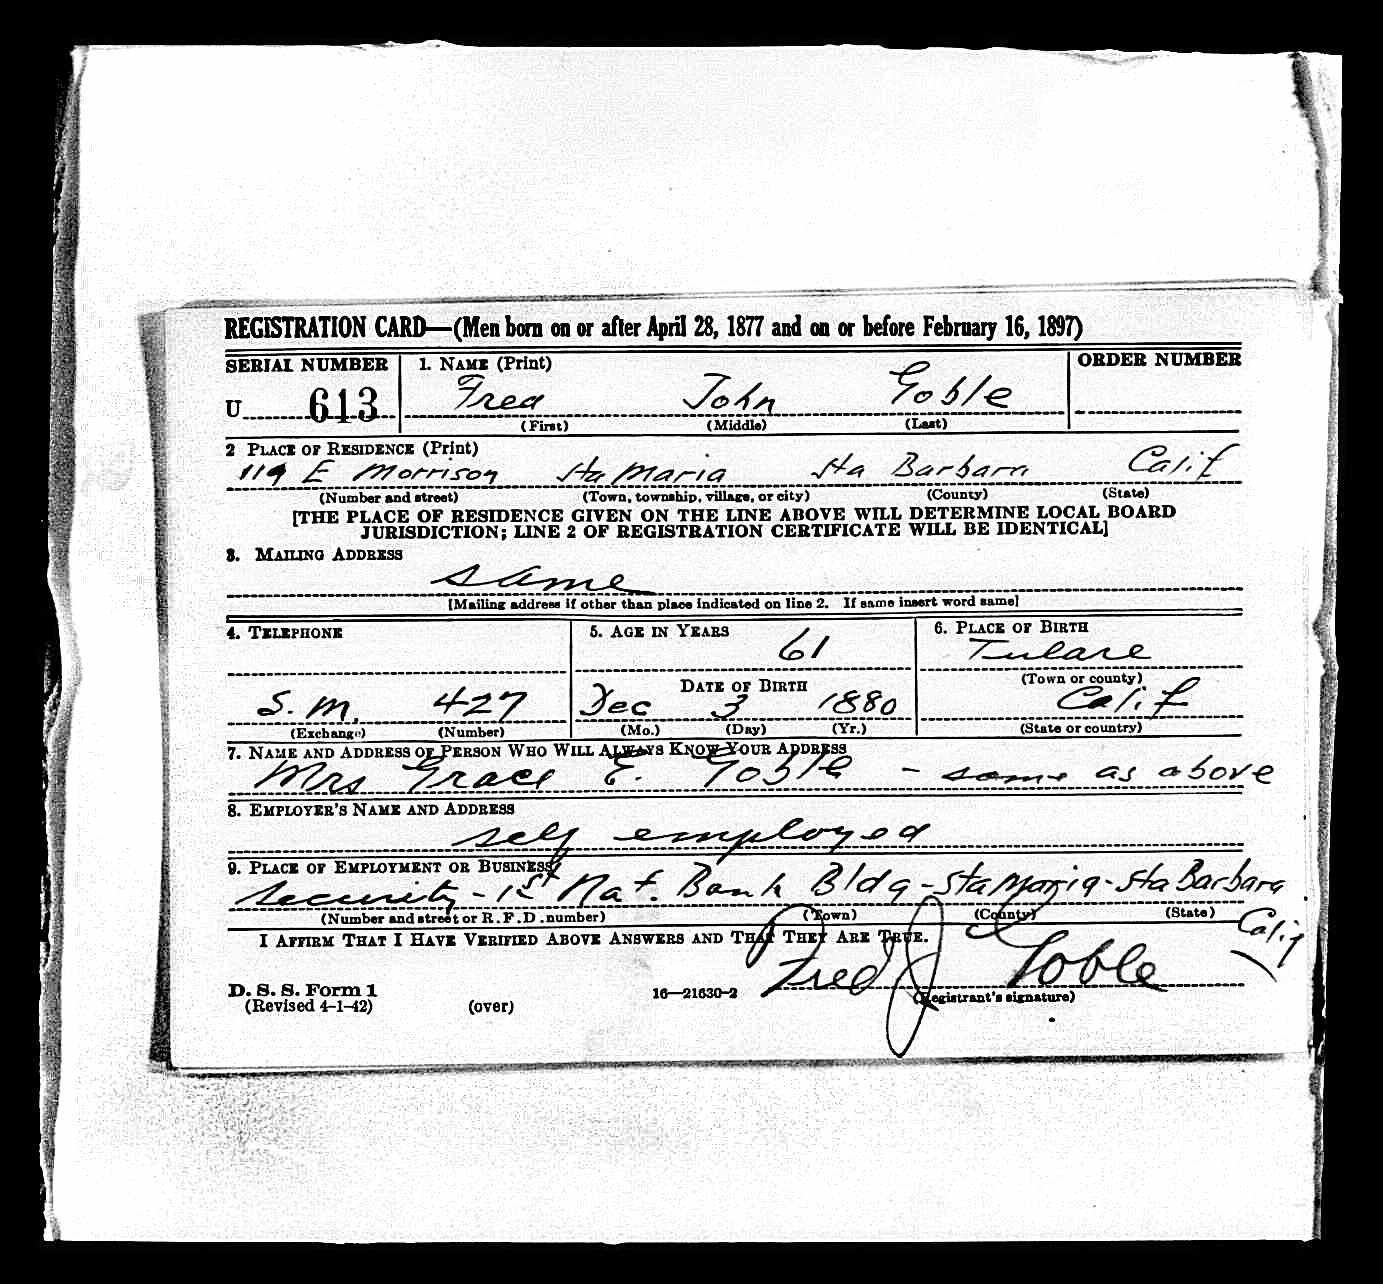 REGISTRATION CARD—(Men born on or after April 28, 1877 and on or before February 16, 1897)
SERIAL NUMBER 1. NAME (Print) ORDER NUMBER
U 613 Fred John Goble
(First) (Middle) (Last)
2 PLACE OF RESIDENCE (Print)
119 E Morrison Sta Maria Sta Barbara Calif
(Number and street) (Town, township, village, or city) (County) (State)
[THE PLACE OF RESIDENCE GIVEN ON THE LINE ABOVE WILL DETERMINE LOCAL BOARD
JURISDICTION; LINE 2 OF REGISTRATION CERTIFICATE WILL BE IDENTICAL]
3. MAILING ADDRESS
same
[Mailing address if other than place indicated on line 2. If same insert word same]
4. TELEPHONE 5. AGE IN YEARS 6. PLACE OF BIRTH
61 Tulare
DATE OF BIRTH (Town or county)
S. M. 427 Dec 3 1880 Calif
(Exchange) (Number) (Mo.) (Day) (Yr.) (State or country)
7. NAME AND ADDRESS OF PERSON WHO WILL ALWAYS KNOW YOUR ADDRESS
Mrs Grace E. Goble - same as above
8. EMPLOYER'S NAME AND ADDRESS
self employed
9. PLACE OF EMPLOYMENT OR BUSINESS
Security - 1st Nat. Bank Bldg - Sta Maria - Sta Barbara
(Number and street or R. F. D. number) (Town) (County) (State) Calif
I AFFIRM THAT I HAVE VERIFIED ABOVE ANSWERS AND THAT THEY ARE TRUE.
Fred J Goble
D. S. S. Form 1 16—21630-2 (Registrant's signature)
(Revised 4-1-42) (over)